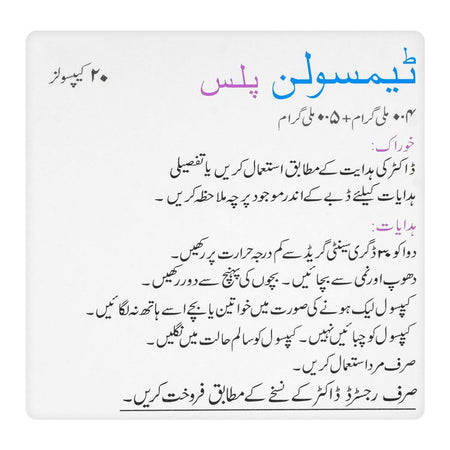 ٹیمسولن پلس ۲۰ کیپسولز
۰.۴ ملی گرام + ۰.۵ ملی گرام
خوراک:
ڈاکٹر کی ہدایت کے مطابق استعمال کریں یا تفصیلی
ہدایات کیلئے ڈبے کے اندر موجود پرچہ ملاحظہ کریں ۔
ہدایات:
دوا کو ۳۰ ڈگری سینٹی گریڈ سے کم درجہ حرارت پر رکھیں۔
دھوپ اور نمی سے بچائیں ۔ بچوں کی پہنچ سے دور رکھیں ۔
کیپسول لیک ہونے کی صورت میں خواتین یا بچے اسے ہاتھ نہ لگائیں ۔
کیپسول کو چبائیں نہیں ۔ کیپسول کو سالم حالت میں نگلیں ۔
صرف مرد استعمال کریں ۔
صرف رجسٹرڈ ڈاکٹر کے نسخے کے مطابق فروخت کریں ۔